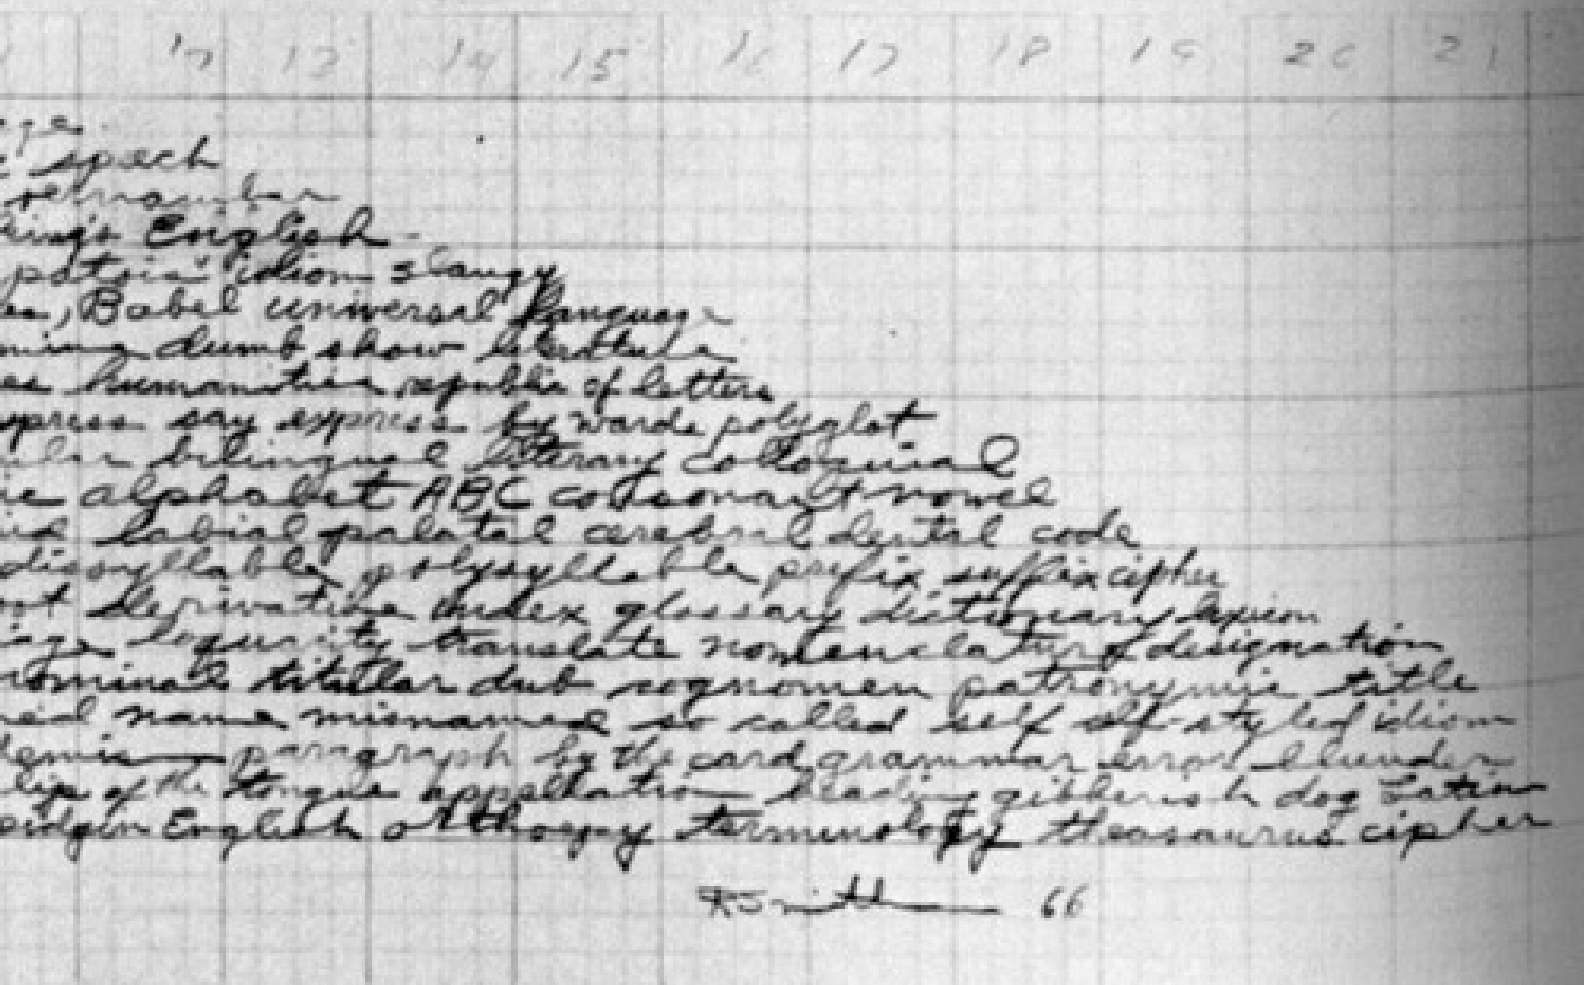 12 13 14 15 16 17 18 19 20 21
speech
vernacular
King's English
patois idiom slangy
Babel universal language
dumb show literature
humanities republic of letters
express say express by words polyglot
bilingual literary colloquial
alphabet ABC consonant vowel
labial palatal cerebral dental code
dissyllable polysyllable prefix suffix cipher
derivative index glossary dictionary lexicon
translate nomenclature designation
nominal titular dub cognomen patronymic title
name misnamed so called self self-styled idiom
paragraph by the card grammar error blunder
slip of the tongue appellation heading gibberish dog Latin
pidgin English orthoepy terminology theasaurus cipher
R Smith 66